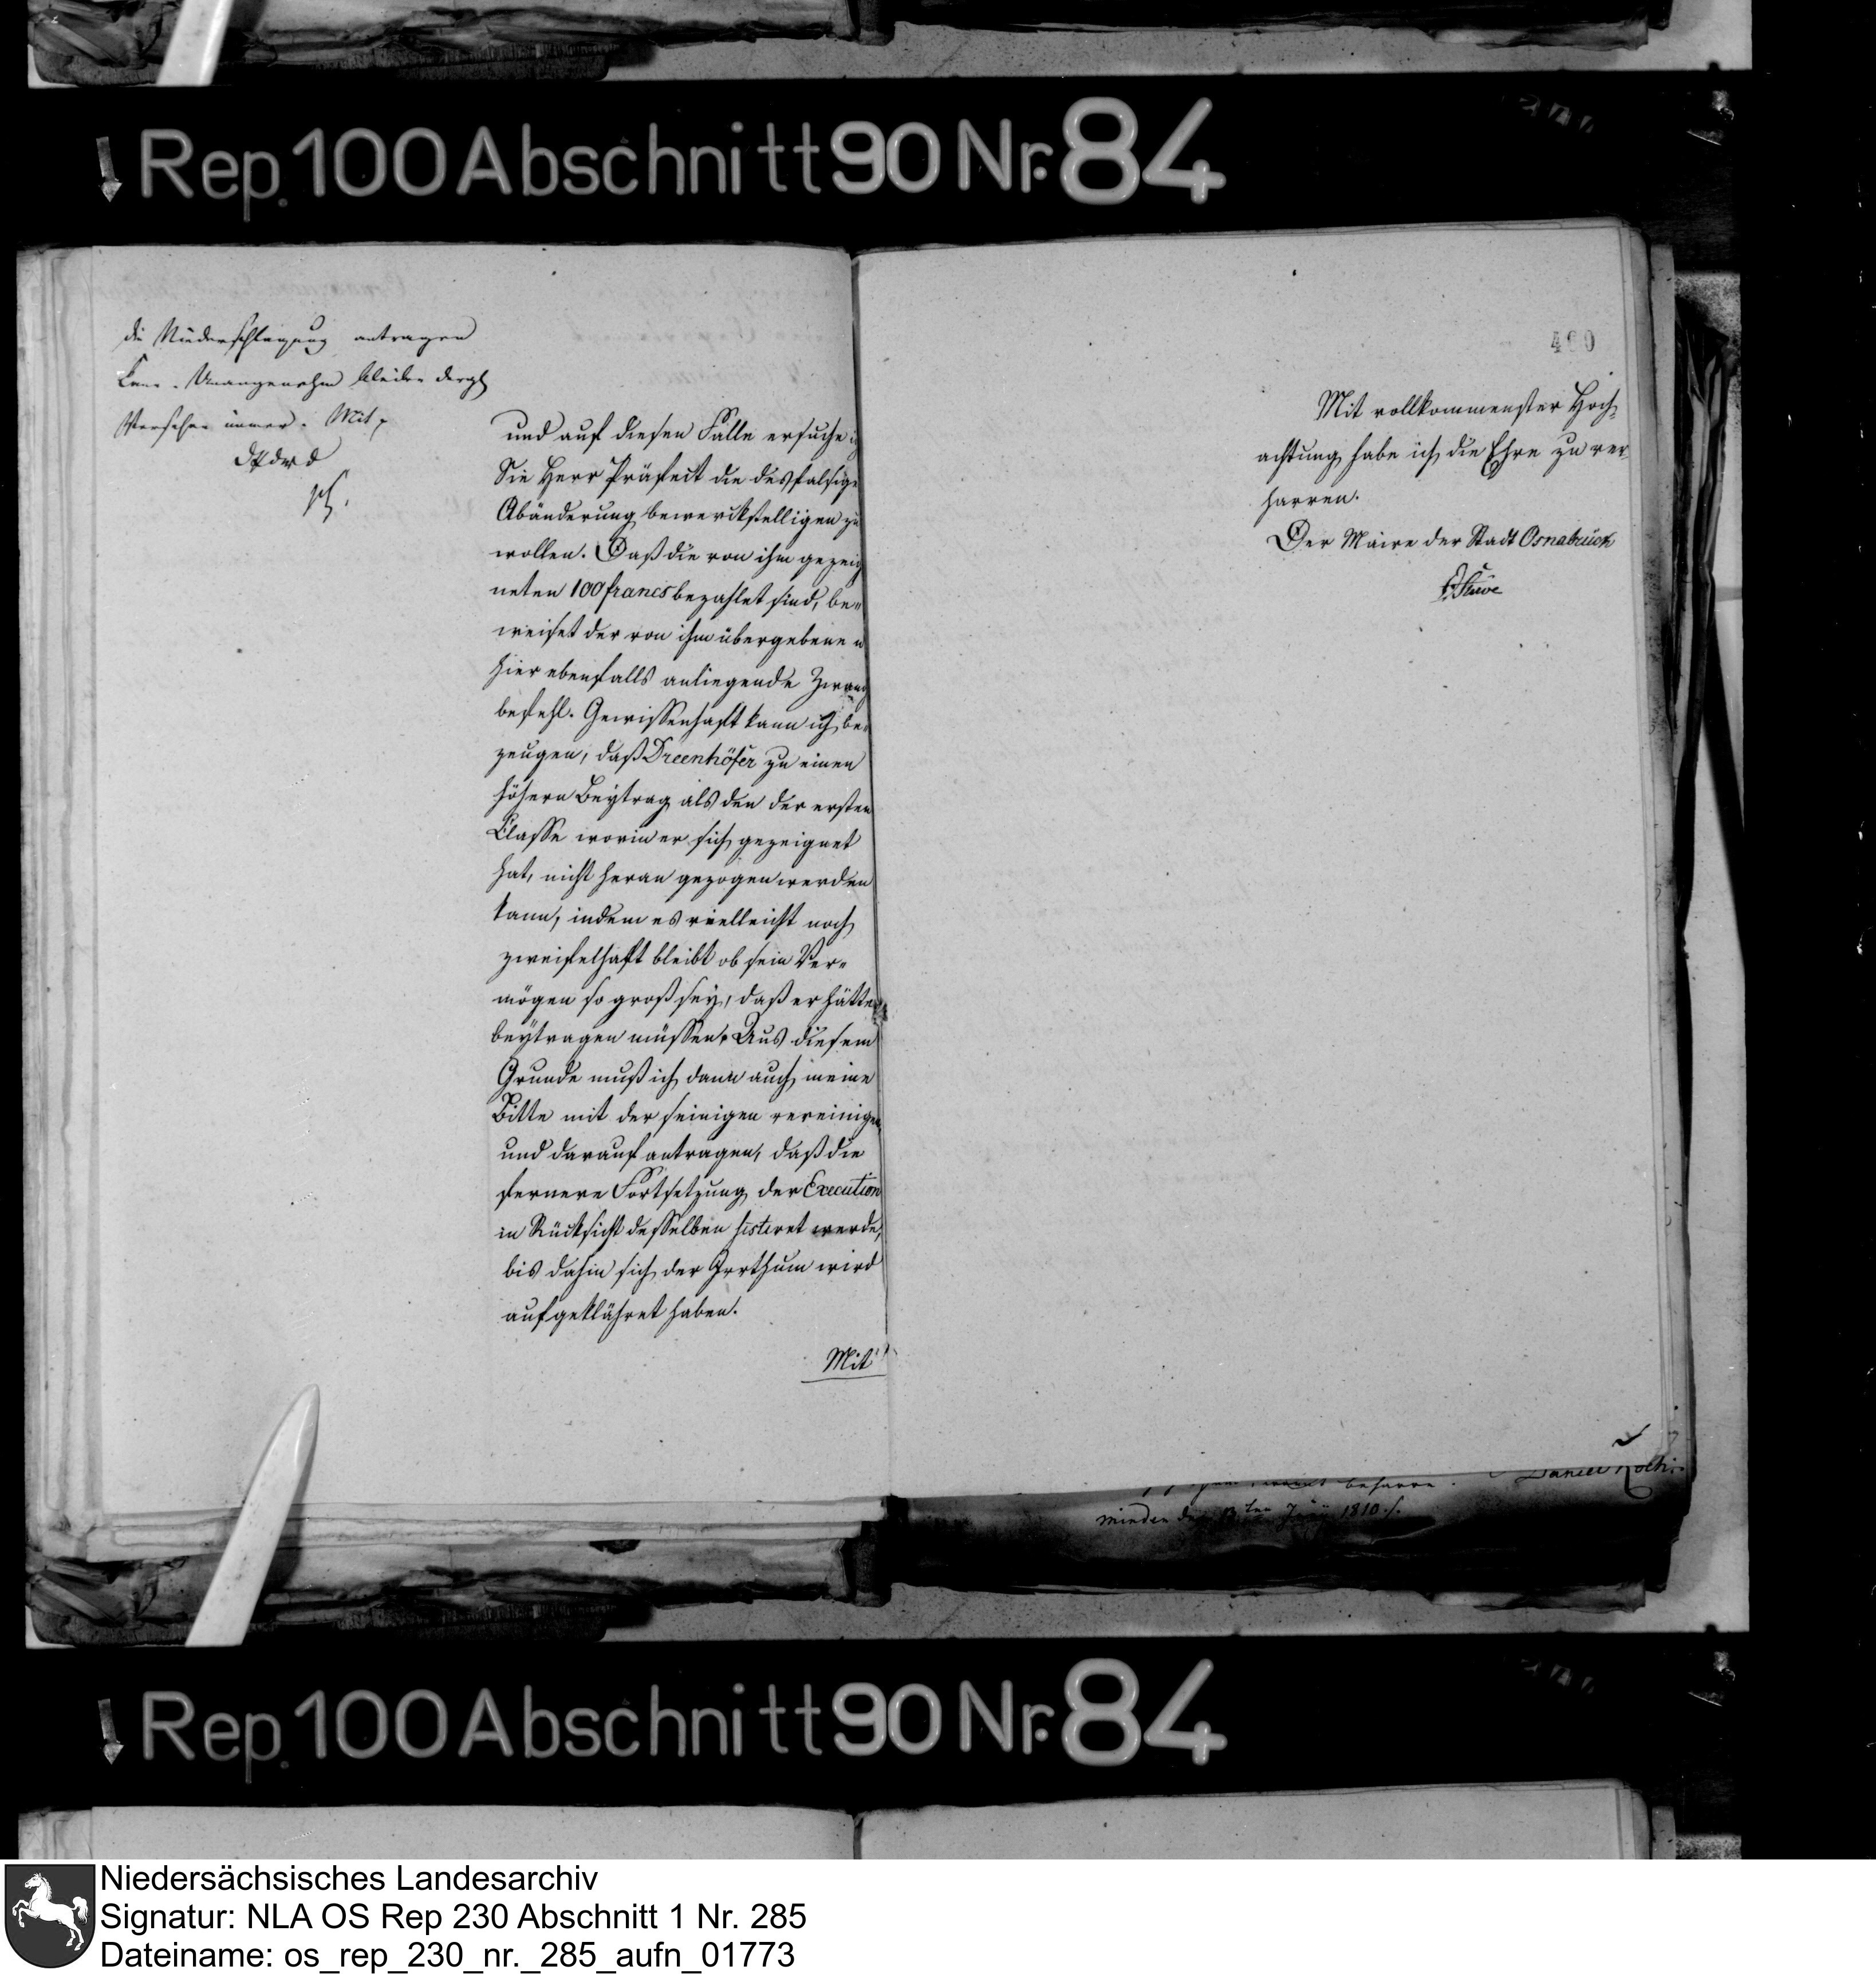 Rep. 100 Abschnitt 90 Nr. 84
die Niederschlagung antragen
kann. Unangenehm bleiben dergl
Versehen immer. Mit
und auf diesen Falle ersuche ich
Sie Herr Präfect die desfalsige
Abänderung bewerckstelligen zu
wollen. Daß die von ihm gezeich
neten 100 francs bezahlet sind, be„
weiset der von ihm übergebene u
hier ebenfalls anliegende Zwang
befehl. Gewissenhaft kann ich be„
zeugen, daß Dreenhöfer zu einen
höhern Beytrag als den der ersten
Classe worin er sich gezeignet
hat, nicht heran gezogen werden
kann, indem es vielleicht noch
zweifelhaft bleibt ob sein Ver„
mögen so groß sey, daß er hätte
beytragen müssen. Aus diesem
Grunde muß ich dann auch meine
Bitte mit der seinigen vereinigen
und darauf antragen, daß die
fernere Fortsetzung der Execution
in Rücksicht desselben sistiret werde,
bis dahin sich der Irrthum wird
aufgeklähret haben.
Mit
Mit vollkommenster Hoch„
achtung habe ich die Ehre zu ver„
harren.
Der Maire der Stadt Osnabrück
Stüve
beharre.
Daniel
Minden den 13ten 1810.
Rep. 100 Abschnitt 90 Nr. 84
Niedersächsisches Landesarchiv
Signatur: NLA OS Rep 230 Abschnitt 1 Nr. 285
Dateiname: os_rep_230_nr._285_aufn_01773